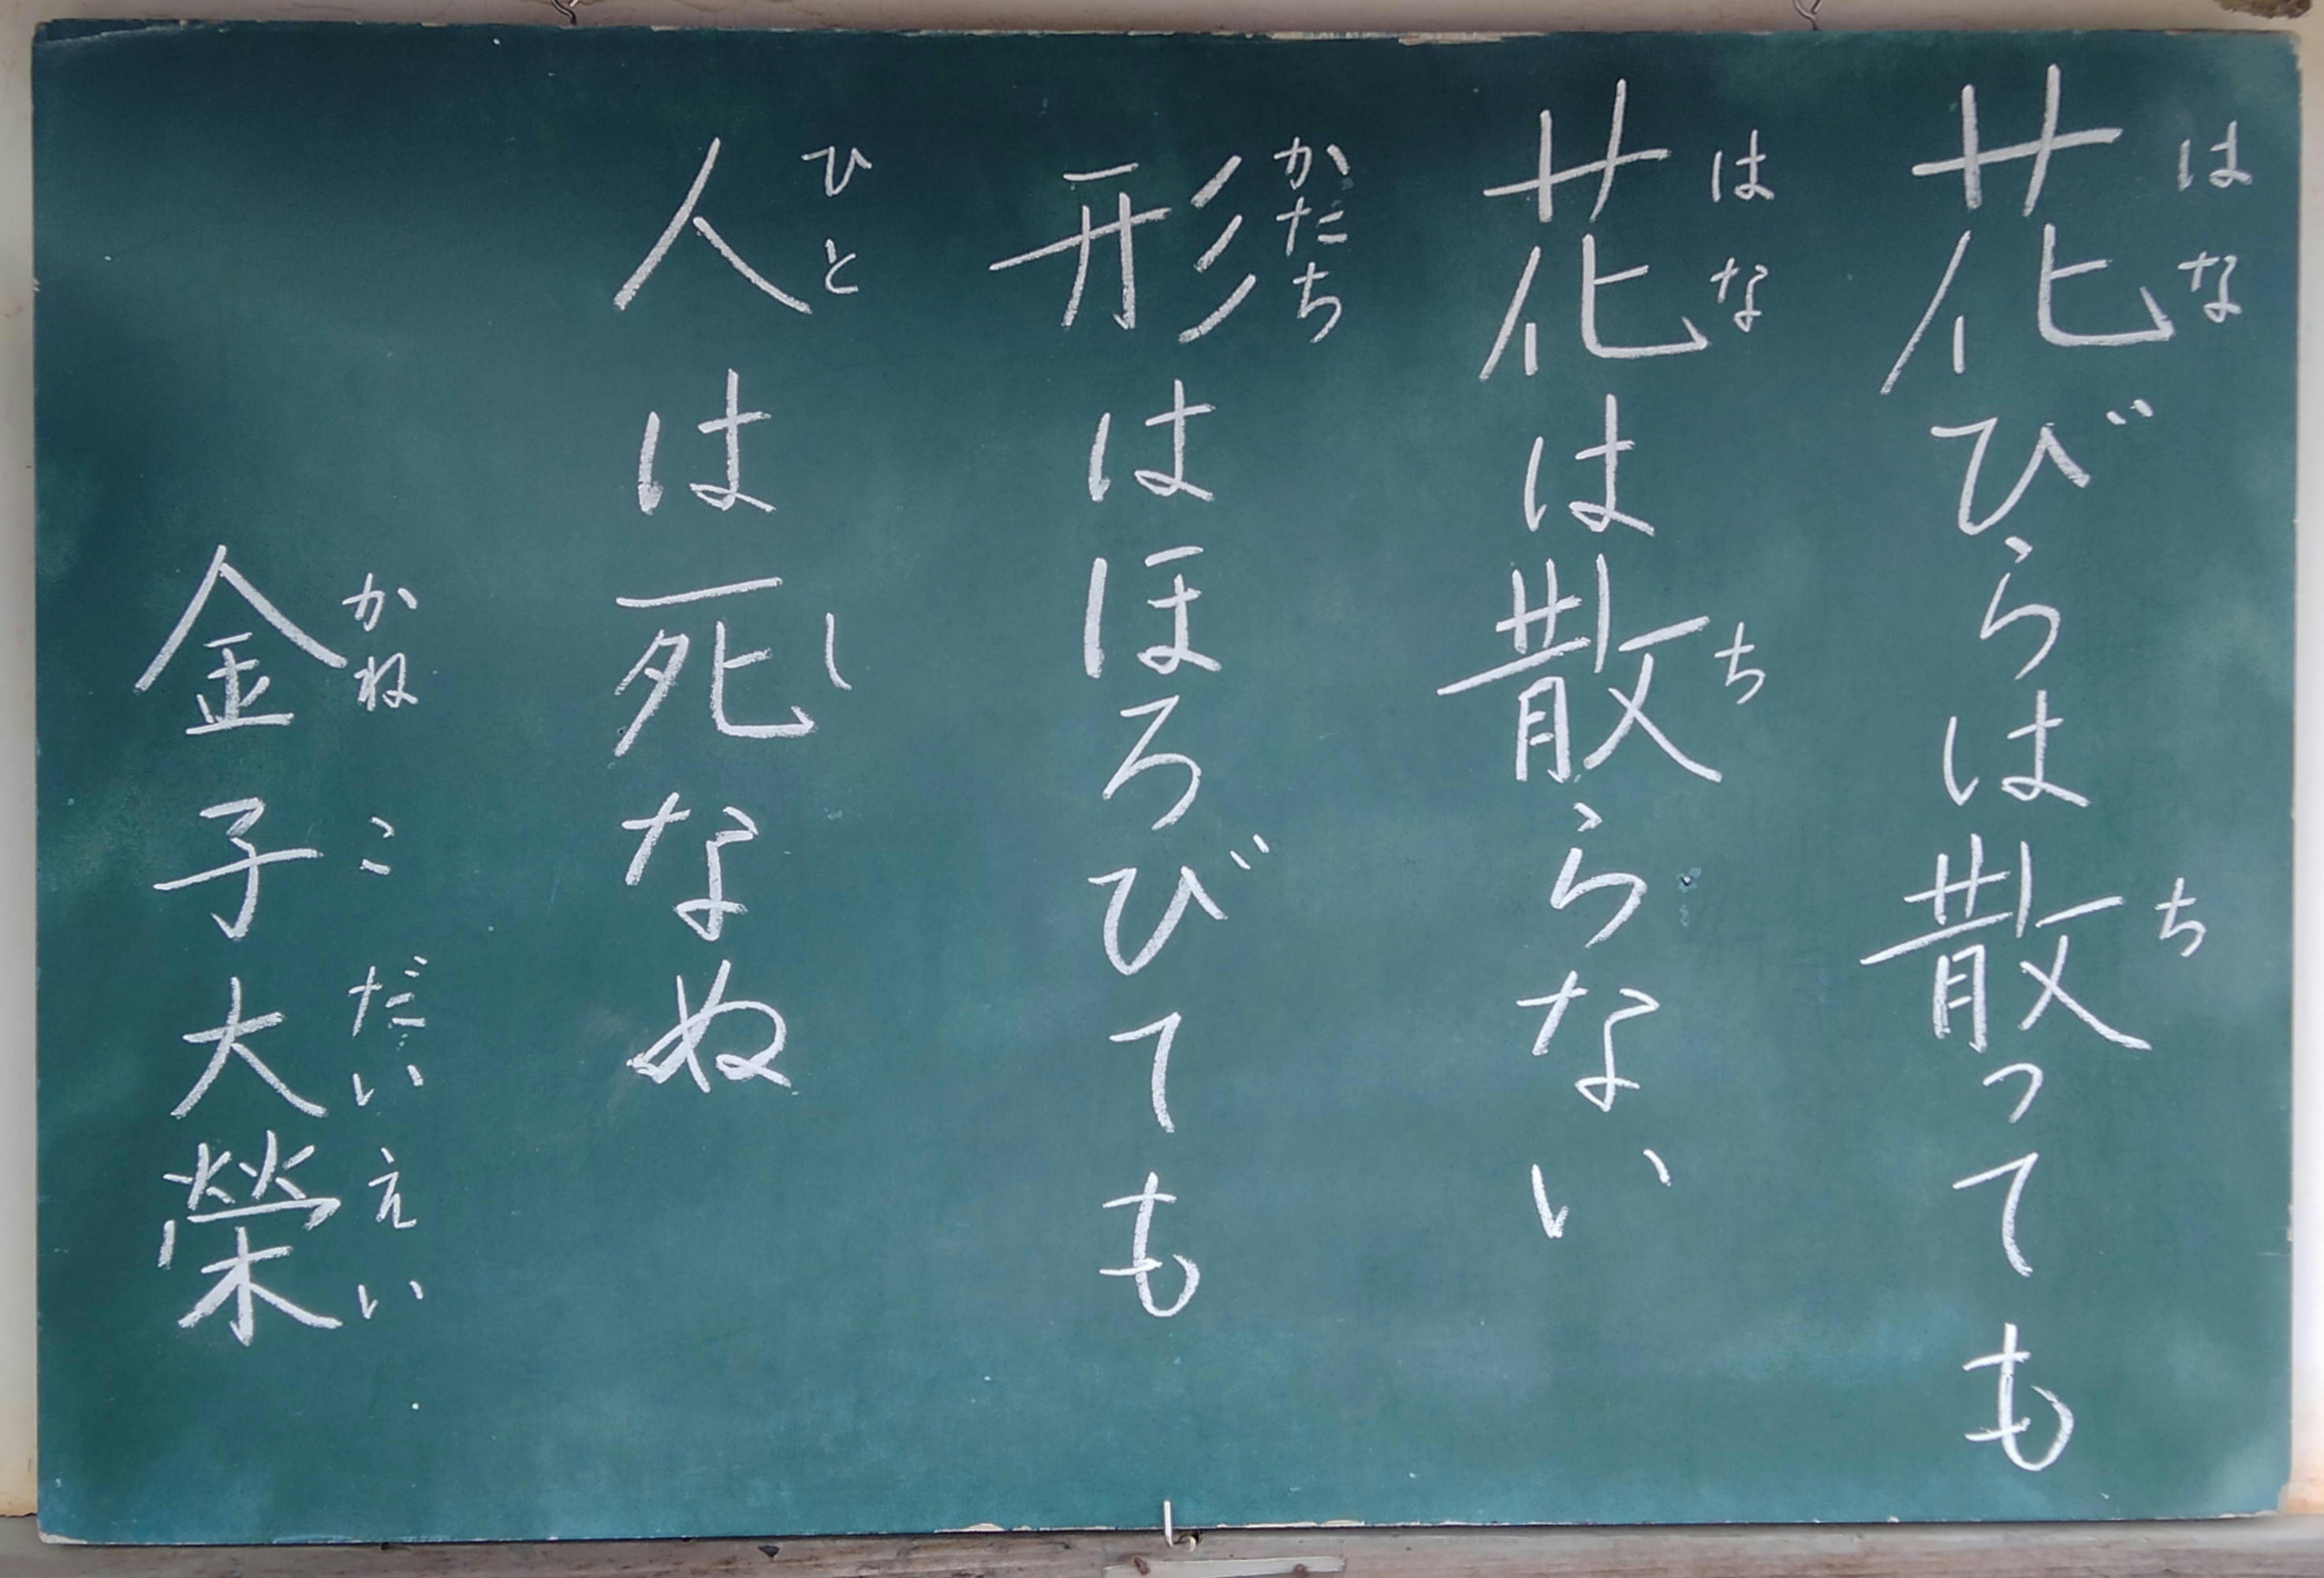 花びらは散っても
花は散らない
形はほろびても
人は死なぬ
金子大榮
はな
ち
はな
ち
かたち
ひと
し
かねこだいえい